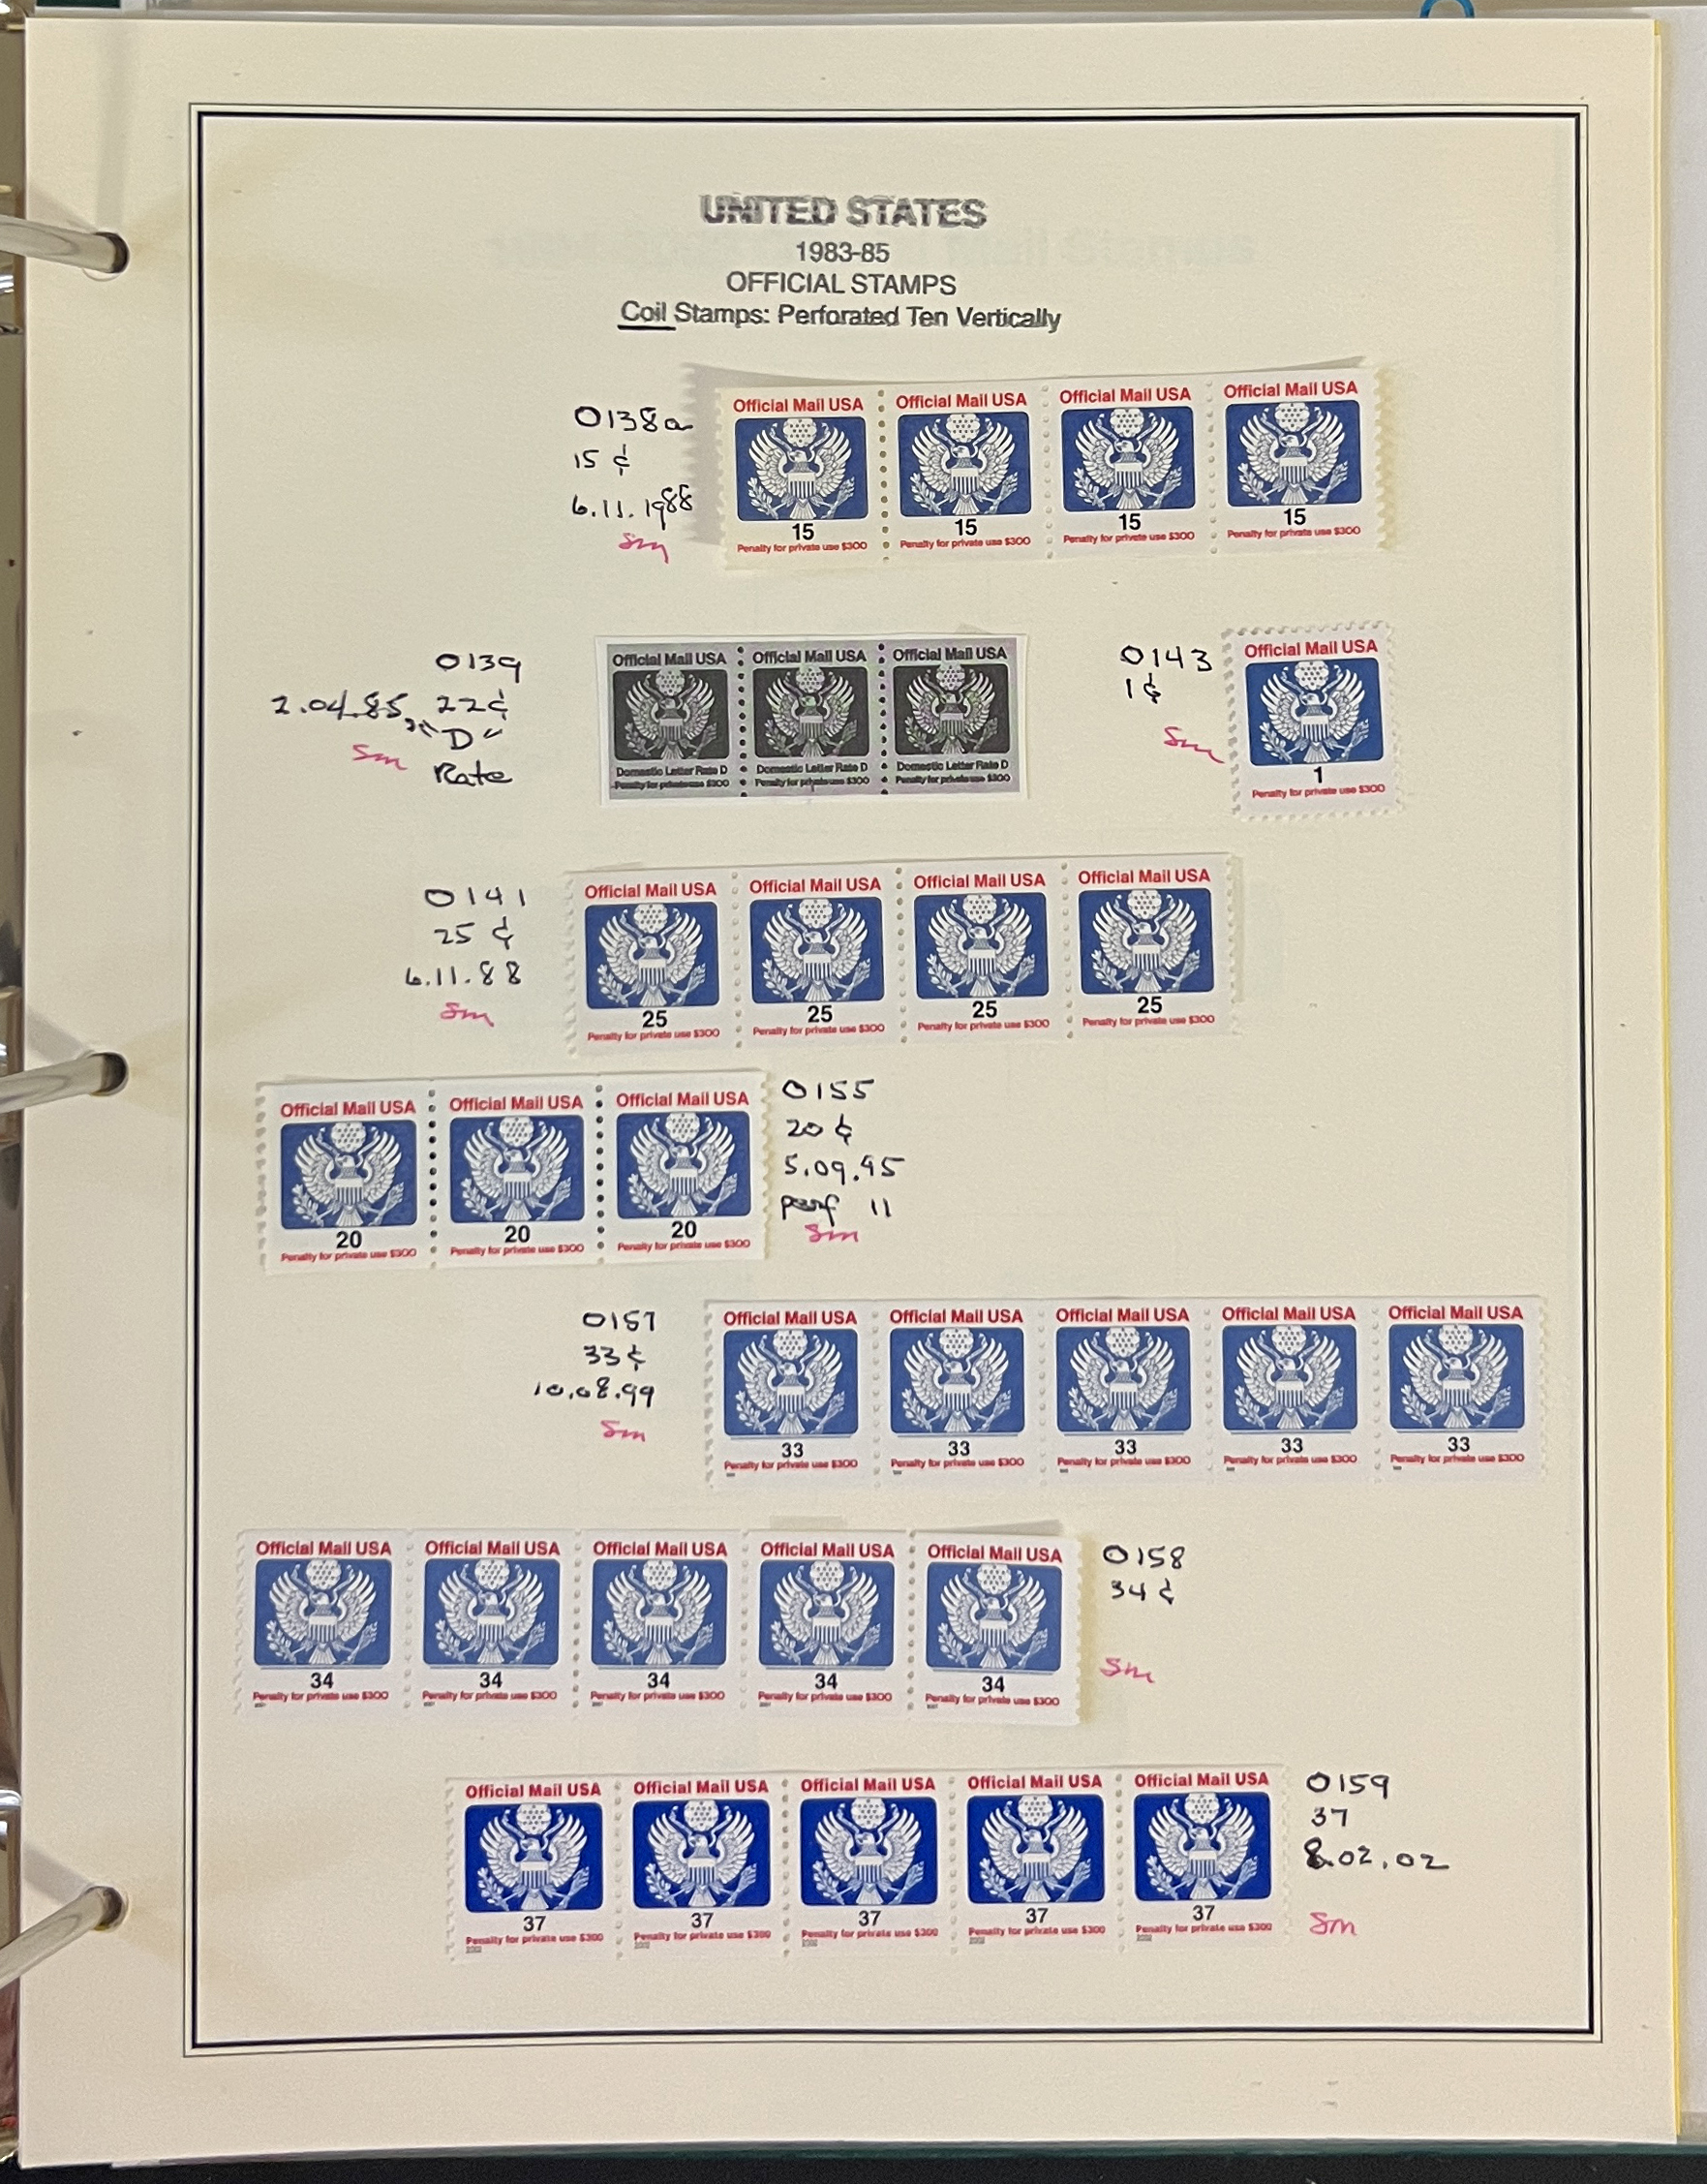 UNITED STATES
1983-85
OFFICIAL STAMPS
Coil Stamps: Perforated Ten Vertically
O138a
15 ¢
6.11.1988
Sm
Official Mail USA Official Mail USA Official Mail USA Official Mail USA
15 15 15 15
Penalty for private use $300 Penalty for private use $300 Penalty for private use $300 Penalty for private use $300
O139
2.04.85 22¢
"D"
Sm
Rate
Official Mail USA Official Mail USA Official Mail USA
Domestic Letter Rate D Domestic Letter Rate D Domestic Letter Rate D
Penalty for private use $300 Penalty for private use $300 Penalty for private use $300
O143
1¢
Sm
Official Mail USA
1
Penalty for private use $300
O141
25 ¢
6.11.88
Sm
Official Mail USA Official Mail USA Official Mail USA Official Mail USA
25 25 25 25
Penalty for private use $300 Penalty for private use $300 Penalty for private use $300 Penalty for private use $300
Official Mail USA Official Mail USA Official Mail USA
20 20 20
Penalty for private use $300 Penalty for private use $300 Penalty for private use $300
O155
20 ¢
5.09.95
perf 11
Sm
O157
33¢
10.08.99
Sm
Official Mail USA Official Mail USA Official Mail USA Official Mail USA Official Mail USA
33 33 33 33 33
Penalty for private use $300 Penalty for private use $300 Penalty for private use $300 Penalty for private use $300 Penalty for private use $300
Official Mail USA Official Mail USA Official Mail USA Official Mail USA Official Mail USA
34 34 34 34 34
Penalty for private use $300 Penalty for private use $300 Penalty for private use $300 Penalty for private use $300 Penalty for private use $300
O158
34 ¢
Sm
Official Mail USA Official Mail USA Official Mail USA Official Mail USA Official Mail USA
37 37 37 37 37
Penalty for private use $300 Penalty for private use $300 Penalty for private use $300 Penalty for private use $300 Penalty for private use $300
2002 2002 2002 2002 2002
O159
37
8.02.02
Sm